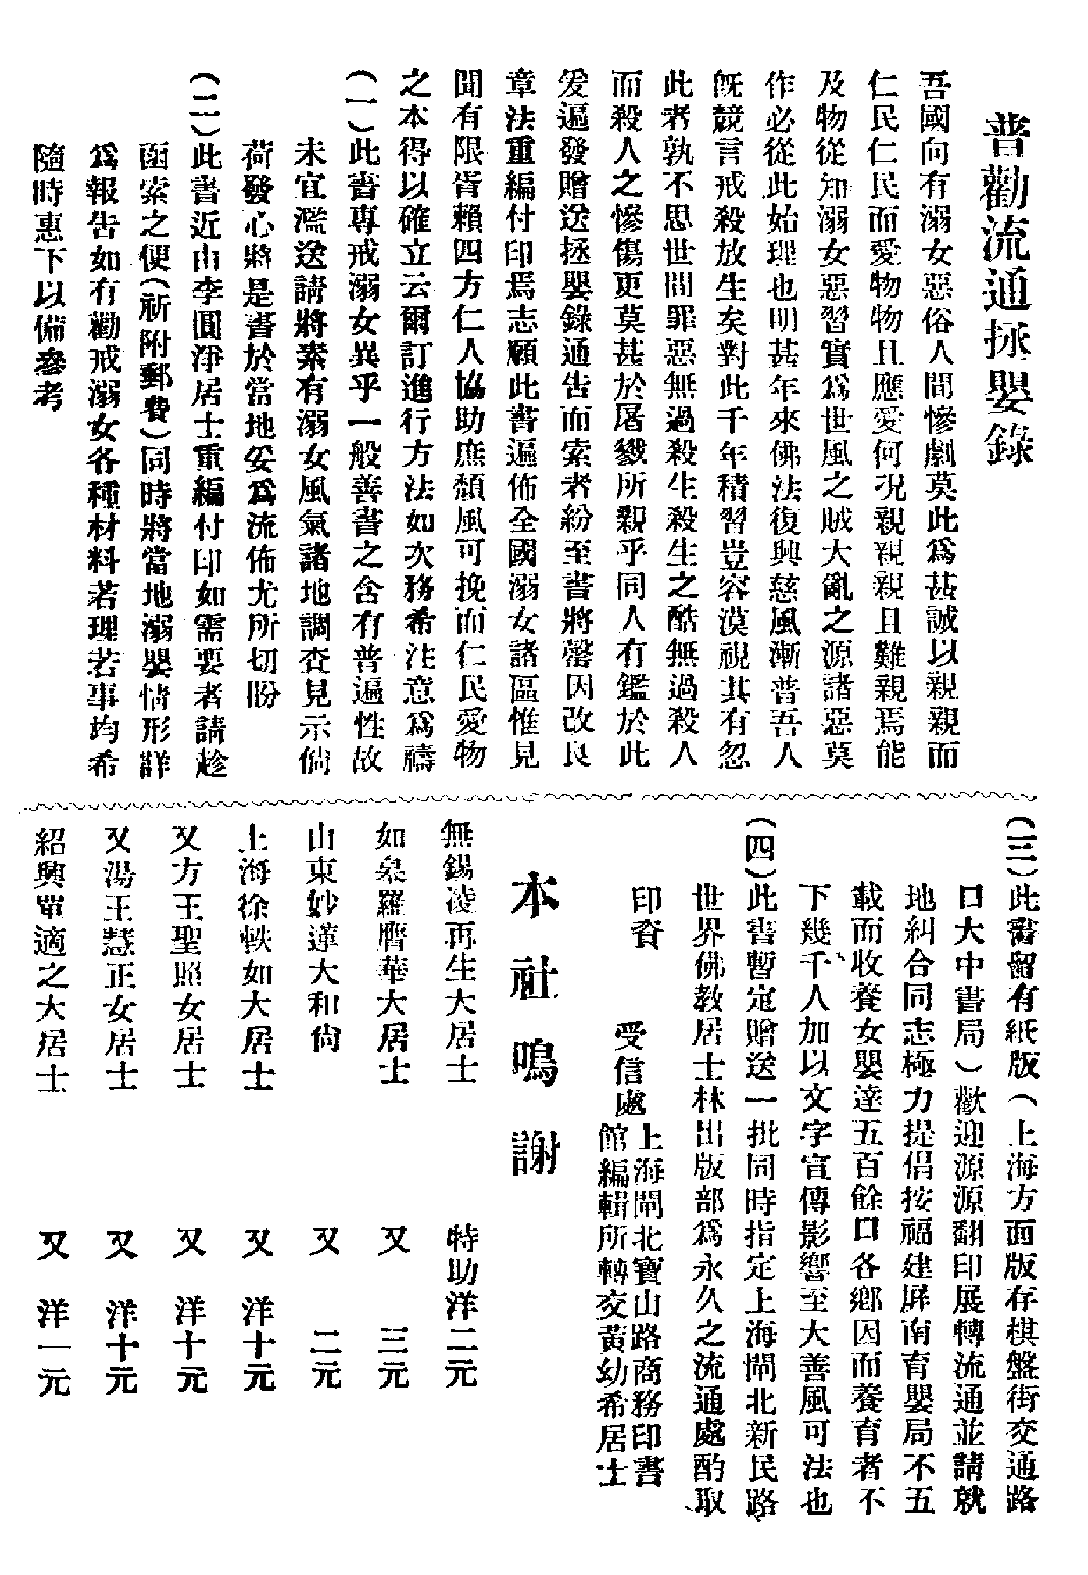 普勸流通拯嬰錄
吾國向有溺女惡俗人間慘劇莫此爲甚誠以親親而
仁民仁民而愛物物且應愛何况親親親且難親焉能
及物從知溺女惡習實爲世風之賊大亂之源諸惡莫
作必從此始理也明甚年來佛法復興慈風漸普吾人
旣競言戒殺放生矣對此千年積習豈容漠視其有忽
此者孰不思世間罪惡無過殺生殺生之酷無過殺人
而殺人之慘傷更莫甚於屠戮所親乎同人有鑑於此
爰遍發贈送拯嬰錄通告而索者紛至書將罄因改良
章法重編付印焉志願此書遍佈全國溺女諸區惟見
聞有限胥賴四方仁人協助庶頹風可挽而仁民愛物
之本得以確立云爾訂進行方法如次務希注意爲禱
(一)此書專戒溺女異乎一般善書之含有普遍性故
未宜濫送請將素有溺女風氣諸地調查見示倘
荷發心將是書於當地妥爲流佈尤所切盼
(二)此書近由李圓淨居士重編付印如需要者請趁
函索之便(祈附郵費)同時將當地溺嬰情形詳
爲報告如有勸戒溺女各種材料若理若事均希
隨時惠下以備參考
(三)此書留有紙版(上海方面版存棋盤街交通路
口大中書局)歡迎源源翻印展轉流通並請就
地糾合同志極力提倡按福建屏南育嬰局不五
載而收養女嬰達五百餘口各鄉因而養育者不
下幾千人加以文字宣傳影響至大善風可法也
(四)此書暫定贈送一批同時指定上海閘北新民路
世界佛教居士林出版部爲永久之流通處酌取
印資
受信處 上海閘北寶山路商務印書
館編輯所轉交黃幼希居士
本社鳴謝
無錫凌再生大居士 特助洋二元
如臯羅膺華大居士 又 三元
山東妙蓮大和尙 又 二元
上海徐軼如大居士 又 洋十元
又方王聖照女居士 又 洋十元
又湯王慧正女居士 又 洋十元
紹興單適之大居士 又 洋一元